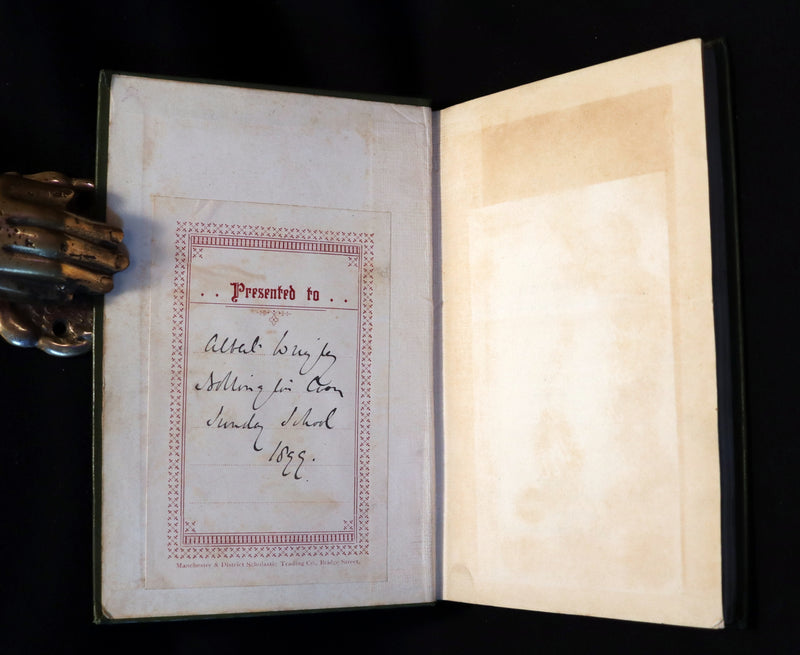 . . Presented to . .
Albert Wrigley
Bollington Cross
Sunday School
1899.
Manchester & District Scholastic Trading Co., Bridge Street.